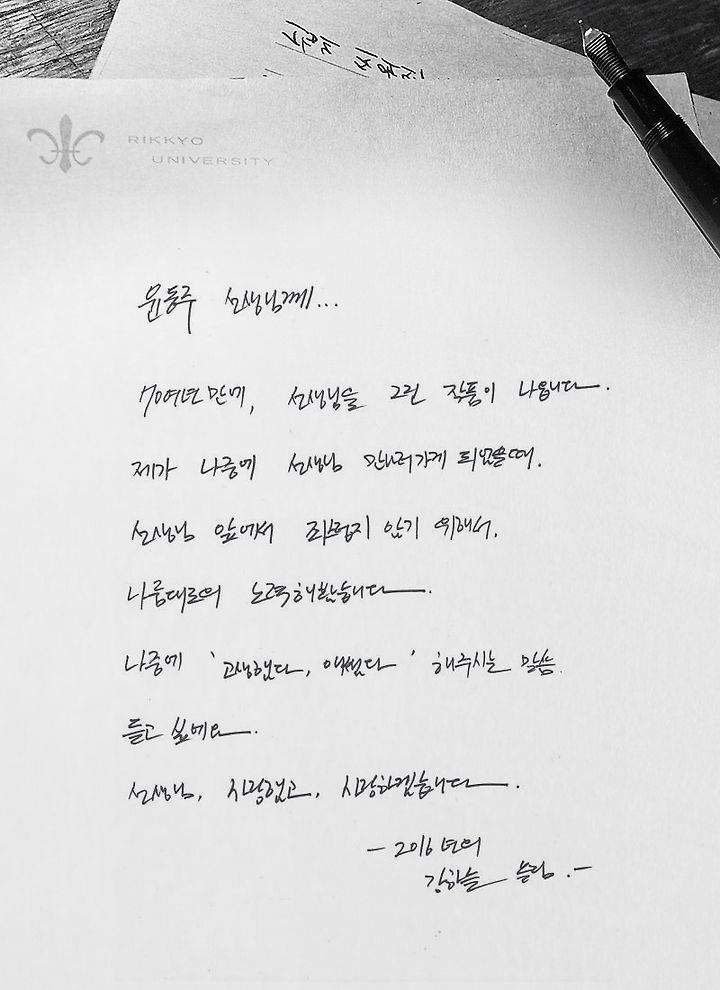 RIKKYO
UNIVERSITY
윤동주 선생님께...
70여년만에, 선생님을 그린 작품이 나옵니다.
제가 나중에 선생님 만나러가게 되었을때.
선생님 앞에서 부끄럽지 않기 위해서.
나름대로의 노력해봤습니다.
나중에 '고생했다, 애썼다' 해주시는 말씀
듣고 싶네요.
선생님, 사랑했고, 사랑하겠습니다.
- 2016년의
강하늘 올림.-